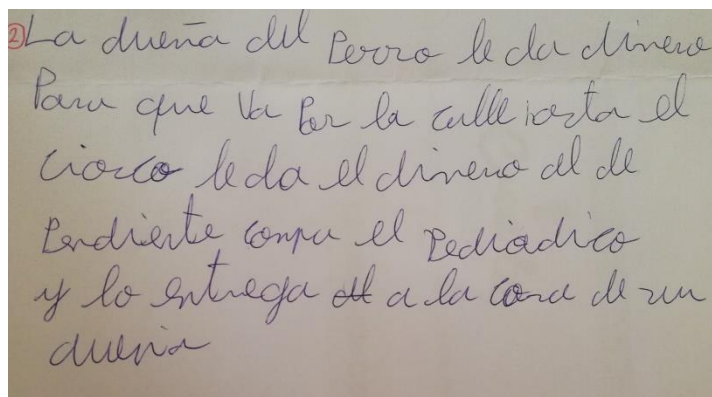 ② La dueña del Perro le da dinero
Para que va Por la calle iasta el
ciosco le da el dinero al de
Pendiente compra el Pediadico
y lo entrega a la casa de zun
dueña